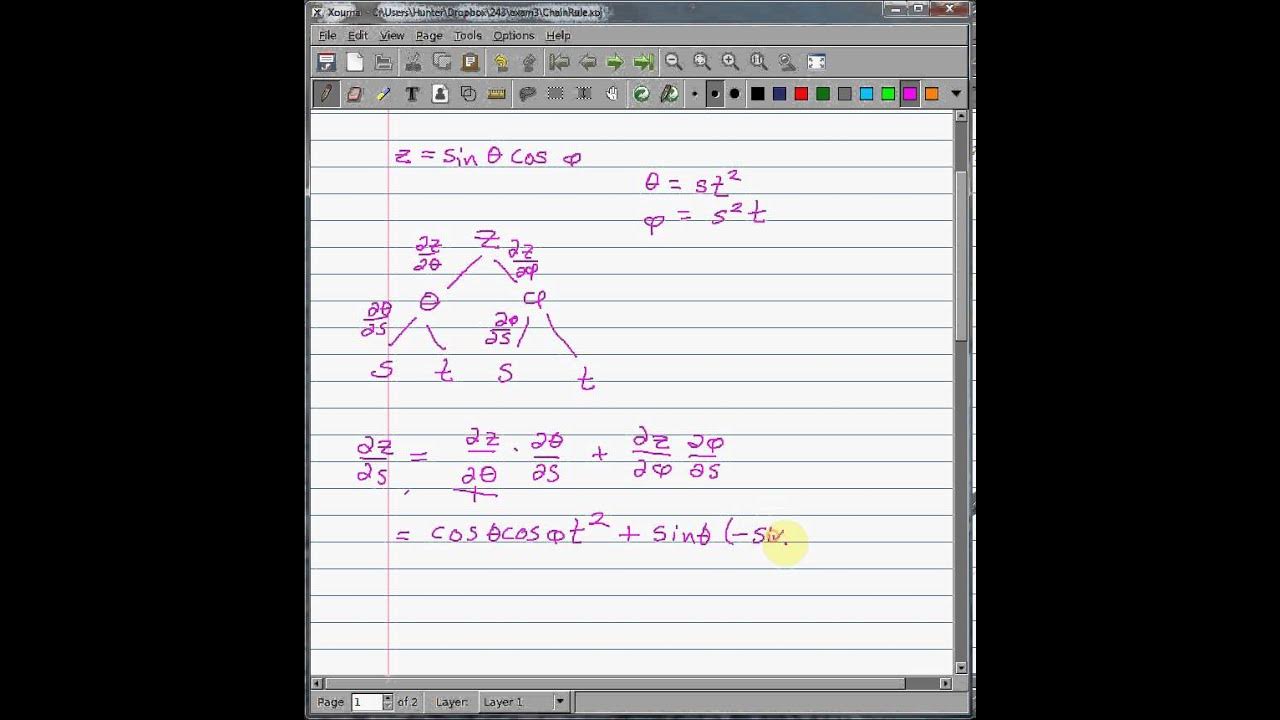 Xournal - C:\Users\Hunter\Dropbox\243\exam3\ChainRule.xoj
File Edit View Page Tools Options Help
z = sin θ cos φ
θ = st²
φ = s²t
∂z/∂θ z ∂z/∂φ
θ φ
∂θ/∂s ∂φ/∂s
s t s t
∂z/∂s = ∂z/∂θ · ∂θ/∂s + ∂z/∂φ ∂φ/∂s
= cos θ cos φ t² + sin θ (-si
Page 1 of 2 Layer: Layer 1